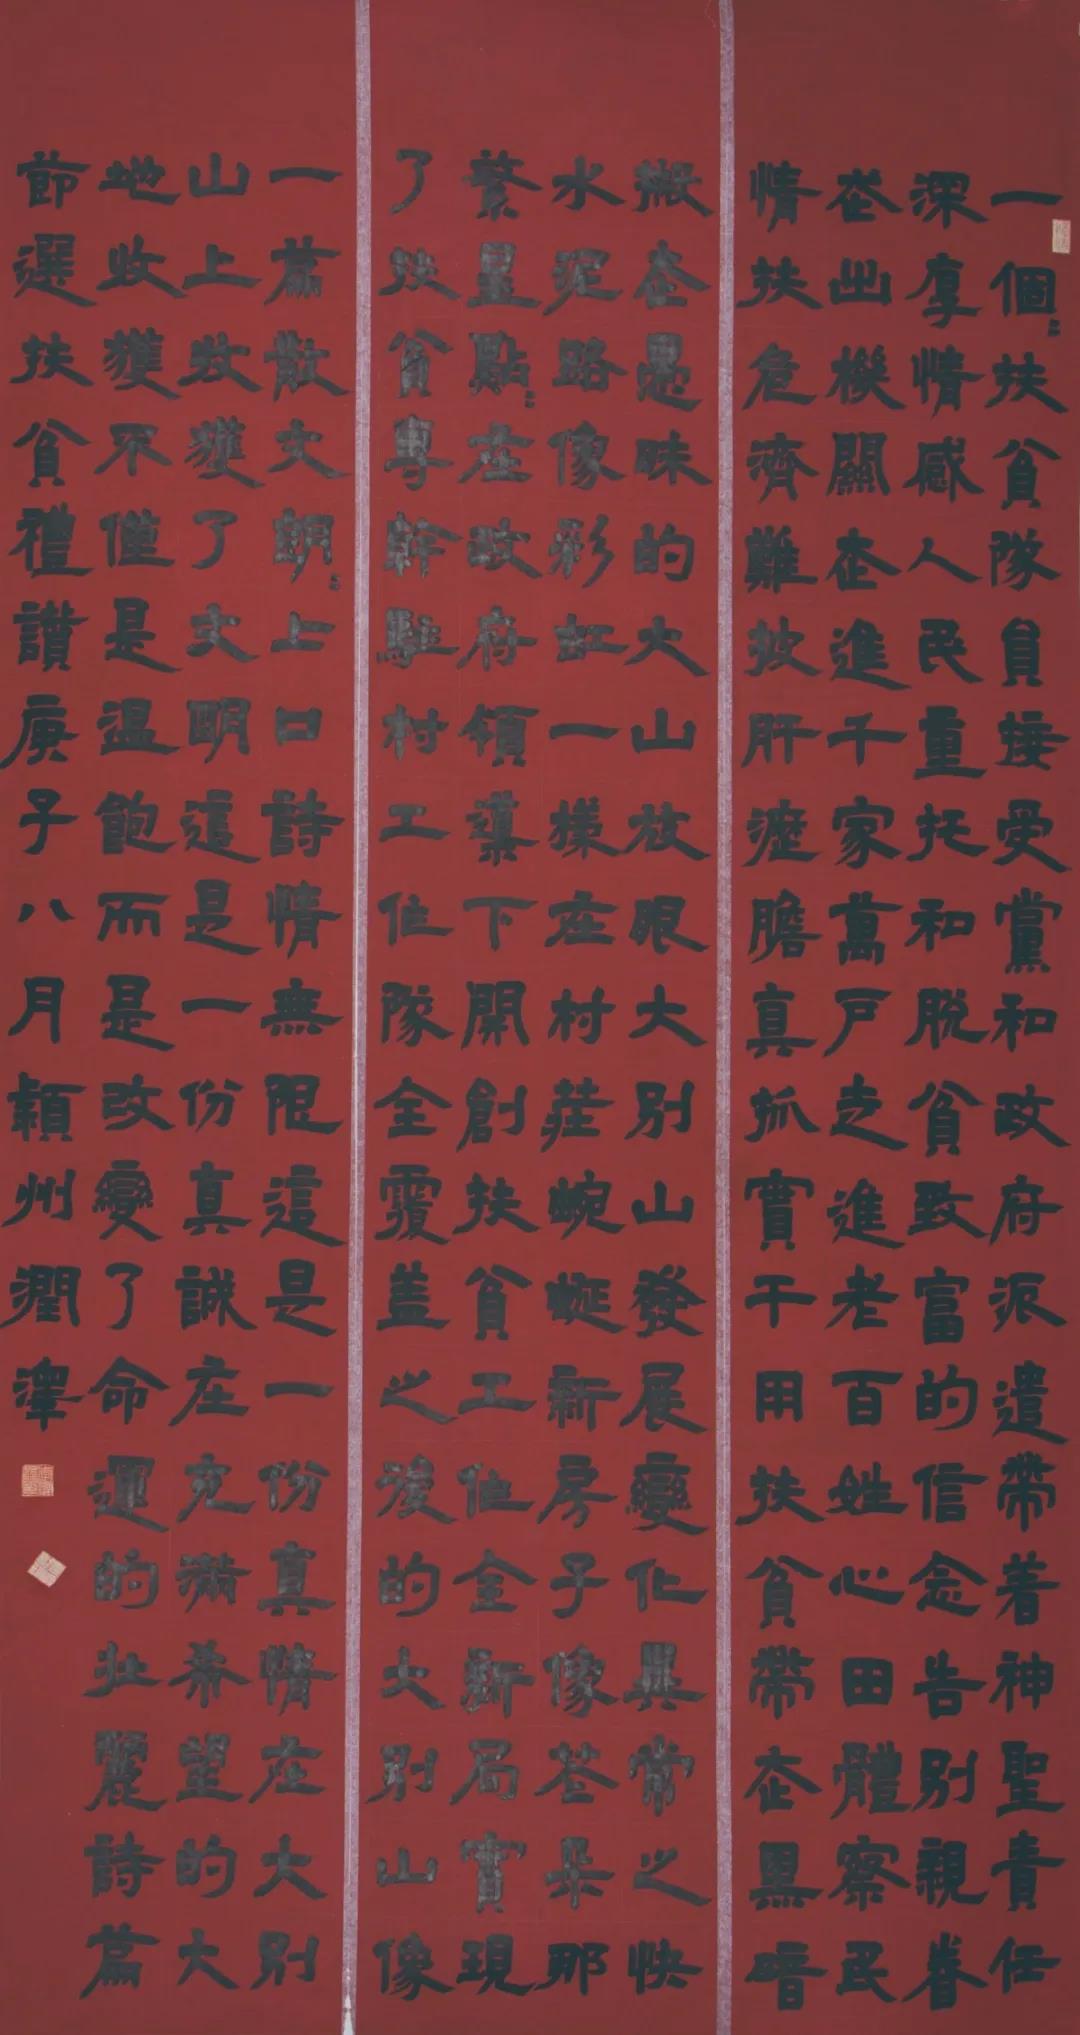 一個〻扶貧隊員接受黨和政府派遣帶着神聖責任
深厚情感人民重托和脫貧致富的信念告別親眷
走出機關走進千家萬戶走進老百姓心田體察民
情扶危濟難披肝瀝膽真抓實干用扶貧帶走黑暗
搬走愚昧的大山放眼大別山發展變化異常之快
水泥路像彩虹一樣在村莊蜿蜒新房子像花朵那
繁星點〻在政府領導下開創扶貧工作全新局實現
了扶貧專幹駐村工作隊全覆盖之後的大別山像
一篇散文朗〻上口詩情無限這是一份真情在大別
山上收獲了文明這是一份真誠在充滿希望的大
地收獲不僅是溫飽而是改變了命運的壯麗詩篇
節選扶貧禮讚庚子八月潁州潤澤